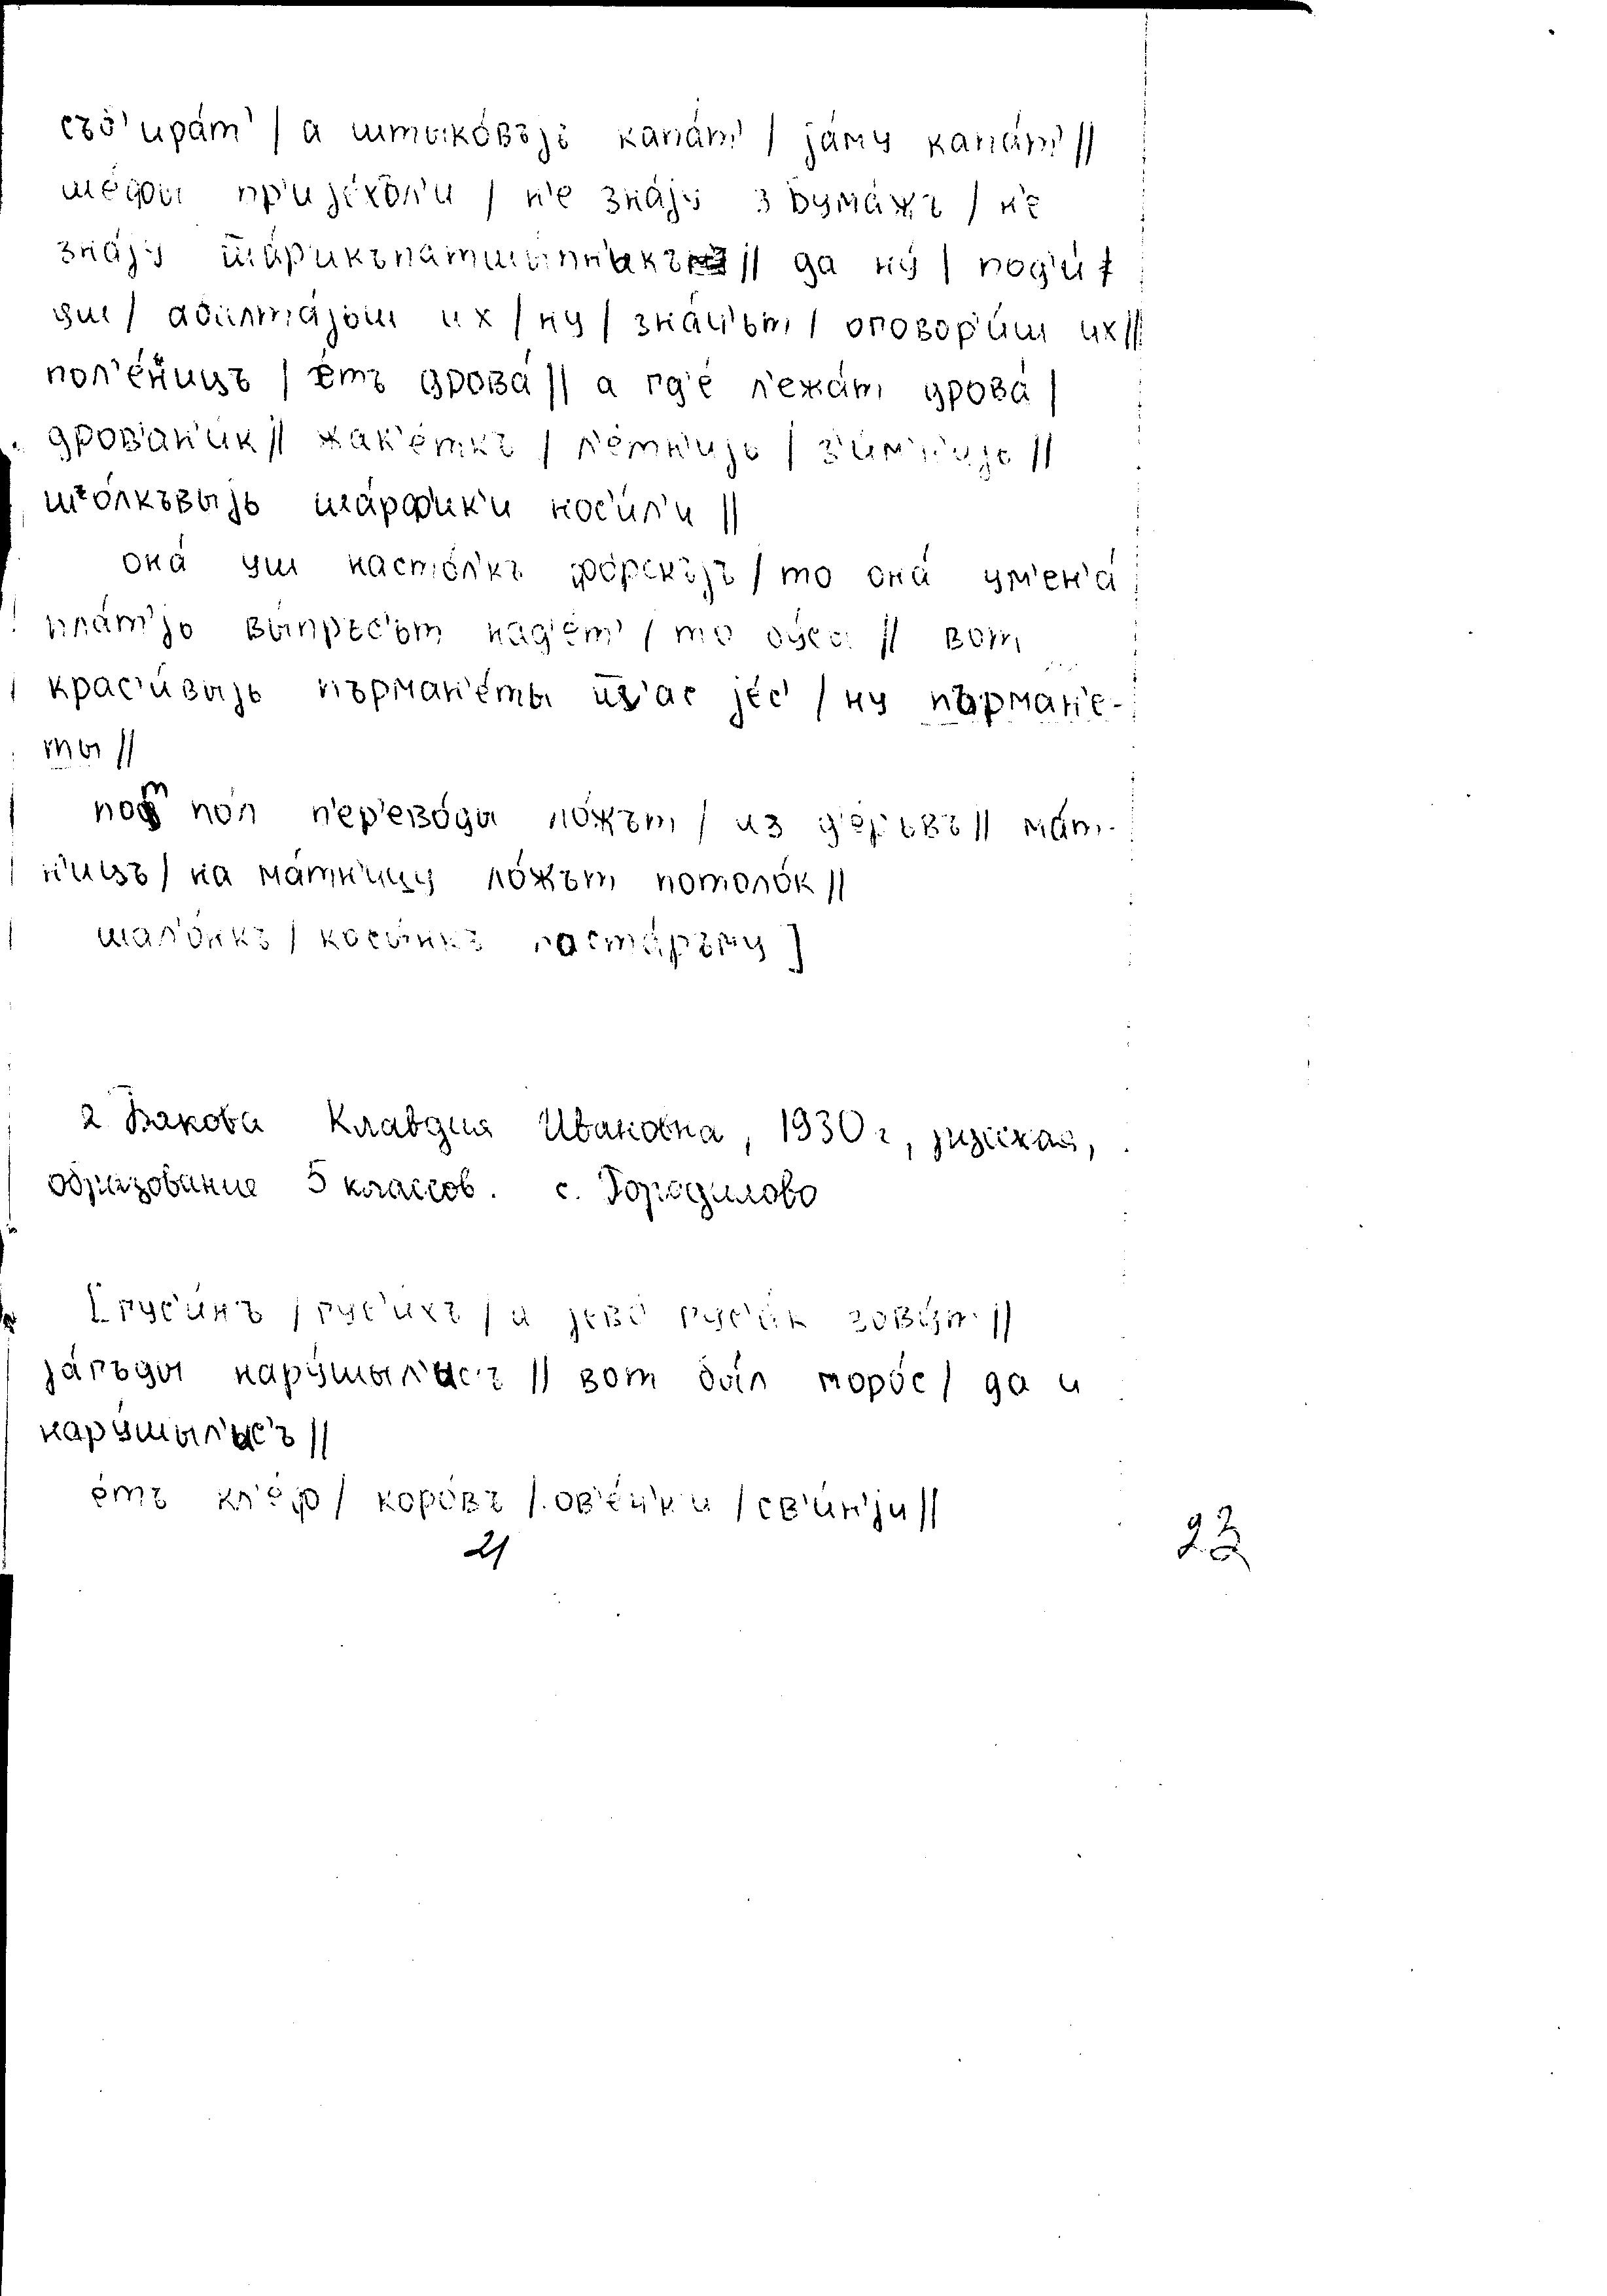 съб'ира́т' / а штыко́въјъ капа́т' / ја́му капа́т' //
ше́фы пр'ијéхъл'и / н'е зна́ју з бума́жъ / н'е
зна́ју ша́р'икъпатшы́пн'икъ // да ну́ / под'и́
уш / абалта́јьш их / ну / зна́ч'ьт / оговор'и́ш их //
пол'е́н'ицъ / е́тъ дрова́ // а гд'е́ л'ежа́т дрова́ /
дров'ан'и́к // жак'е́ткъ / л'е́тн'ијь / з'и́м'н'ијь //
шо́лкъвыјь ша́рф'ик'и нос'и́л'и //
она́ уш насто́л'къ фо́рскъјъ / то она́ у м'ен'а́
пла́т'јь вы́прьс'ьт над'е́т' / то бу́сы // вот
крас'и́выјь пърман'е́ты ш'ас је́с' / ну пърман'е-
ты //
пот по́л п'ер'ево́ды ло́жът / из д'е́р'ьвъ // ма́т-
н'ицъ / на ма́тн'ицу ло́жът потоло́к //
шал'о́нкъ / косы́нкъ паста́ръму ]
2 Быкова Клавдия Ивановна, 1930 г, русская,
образование 5 классов. с. Городилово
[ гус'и́нъ / гус'и́хъ / а јево́ гус'а́к зову́т //
ја́гъды нару́шыл'ис'ъ // вот бы́л моро́с / да и
нару́шыл'ис'ъ //
е́тъ хл'е́ф / коро́въ / ов'е́ч'к'и / св'и́н'ји //
21
23